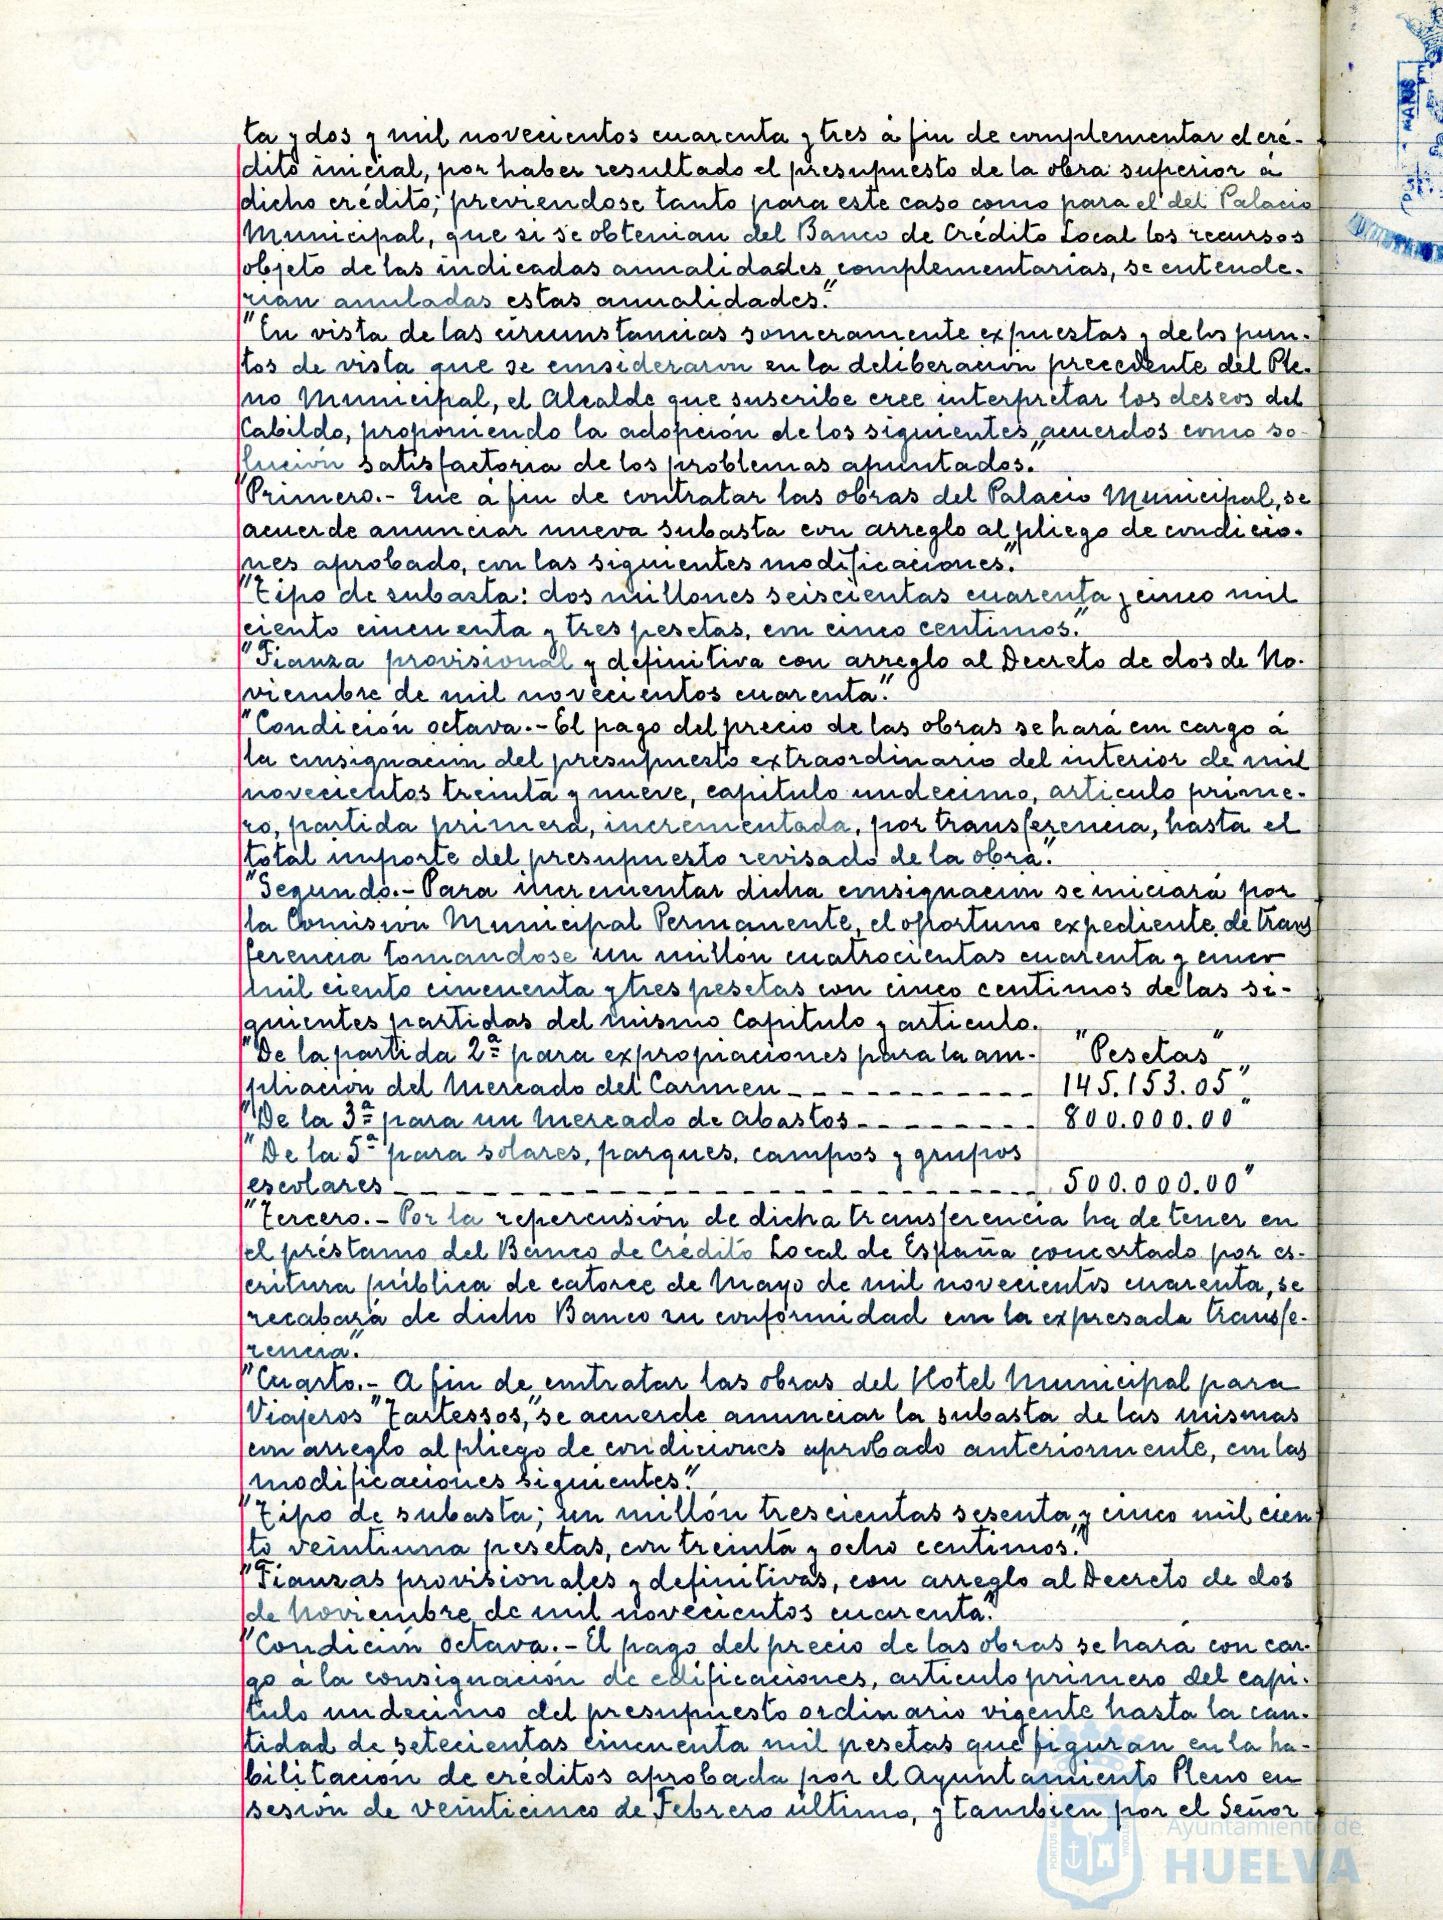 ta y dos y mil novecientos cuarenta y tres á fin de complementar el cré-
dito inicial, por haber resultado el presupuesto de la obra superior á
dicho crédito; previendose tanto para este caso como para el del Palacio
Municipal, que si se obtenian del Banco de Crédito Local los recursos
objeto de las indicadas anualidades complementarias, se entende-
rian anuladas estas anualidades."
"En vista de las circunstancias someramente expuestas y de los pun-
tos de vista que se consideraron en la deliberación precedente del Ple-
no Municipal, el Alcalde que suscribe cree interpretar los deseos del
Cabildo, proponiendo la adopción de los siguientes acuerdos como so-
lución satisfactoria de los problemas apuntados."
"Primero.- Que á fin de contratar las obras del Palacio Municipal, se
acuerde anunciar nueva subasta con arreglo al pliego de condicio-
nes aprobado, con las siguientes modificaciones."
"Tipo de subasta: dos millones seiscientas cuarenta y cinco mil
ciento cincuenta y tres pesetas, con cinco centimos."
"Fianza provisional y definitiva con arreglo al Decreto de dos de No-
viembre de mil novecientos cuarenta."
"Condición octava.- El pago del precio de las obras se hará con cargo á
la consignación del presupuesto extraordinario del interior de mil
novecientos treinta y nueve, capitulo undecimo, articulo prime-
ro, partida primera, incrementada, por transferencia, hasta el
total importe del presupuesto revisado de la obra."
"Segundo.- Para incrementar dicha consignación se iniciará por
la Comisión Municipal Permanente, el oportuno expediente de trans
ferencia tomandose un millón cuatrocientas cuarenta y cinco
mil ciento cincuenta y tres pesetas con cinco centimos de las si-
guientes partidas del mismo Capitulo y articulo.
"De la partida 2ª para expropiaciones para la am- "Pesetas"
pliación del Mercado del Carmen - - - - - - - - - - 145.153.05"
"De la 3ª para un Mercado de Abastos - - - - - - - - 800.000.00"
"De la 5ª para solares, parques, campos y grupos
escolares - - - - - - - - - - - - - - - - - - - - - - 500.000.00"
"Tercero.- Por la repercusión de dicha transferencia ha de tener en
el préstamo del Banco de Crédito Local de España concertado por es-
critura pública de catorce de Mayo de mil novecientos cuarenta, se
recabará de dicho Banco su conformidad con la expresada transfe-
rencia."
"Cuarto.- A fin de contratar las obras del Hotel Municipal para
Viajeros "Tartessos," se acuerde anunciar la subasta de las mismas
con arreglo al pliego de condiciones aprobado anteriormente, con las
modificaciones siguientes."
"Tipo de subasta; un millón trescientas sesenta y cinco mil cien
to veintiuna pesetas, con treinta y ocho centimos."
"Fianzas provisionales y definitivas, con arreglo al Decreto de dos
de Noviembre de mil novecientos cuarenta."
"Condición octava.- El pago del precio de las obras se hará con car-
go á la consignación de edificaciones, articulo primero del capi-
tulo undecimo del presupuesto ordinario vigente hasta la can-
tidad de setecientas cincuenta mil pesetas que figuran en la ha-
bilitación de créditos aprobada por el Ayuntamiento Pleno en
sesión de veinticinco de Febrero último, y tambien por el Señor
Ayuntamiento de
HUELVA